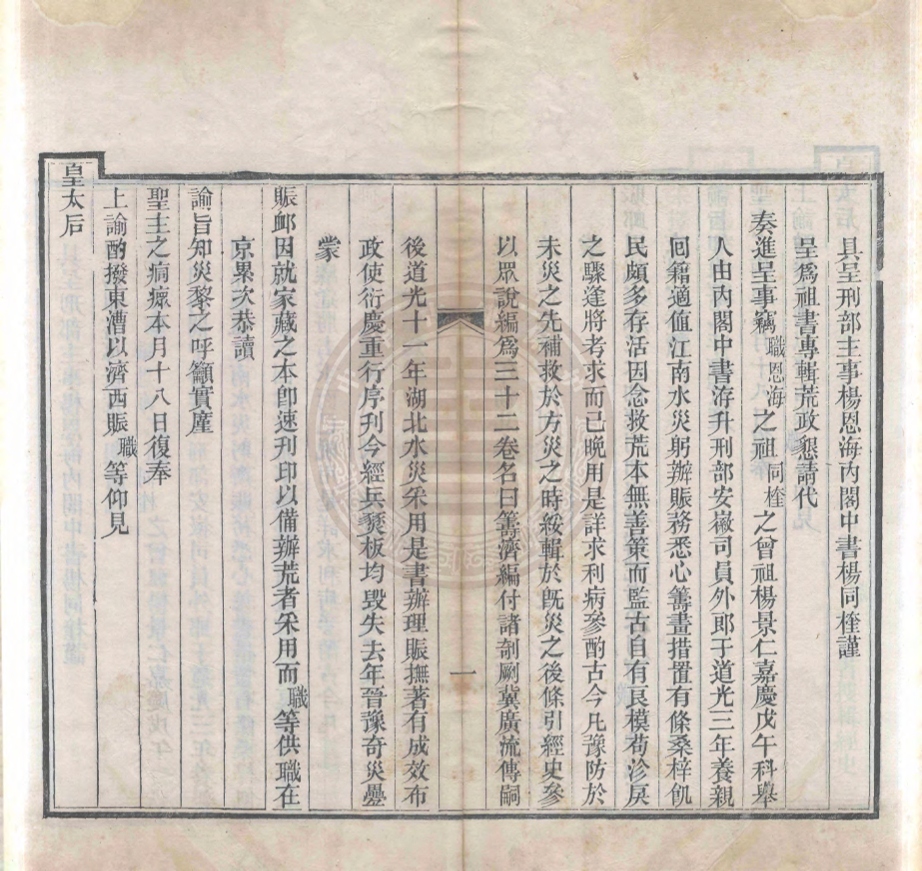 具呈刑部主事楊恩海內閣中書楊同楏謹
呈爲祖書專輯荒政懇請代
奏進呈事竊職恩海之祖同楏之曾祖楊景仁嘉慶戊午科舉
人由內閣中書洊升刑部安徽司員外郎于道光三年養親
囘籍適值江南水災躬辦賑務悉心籌畫措置有條桑梓飢
民頗多存活因念救荒本無善策而監古自有良模苟沴戾
之驟逢將考求而已晚用是詳求利病參酌古今凡豫防於
未災之先補救於方災之時綏輯於旣災之後條引經史參
以眾說編爲三十二卷名曰籌濟編付諸剞劂冀廣流傳嗣
一
後道光十一年湖北水災采用是書辦理賑撫著有成效布
政使衍慶重行序刊今經兵燹板均毀失去年晉豫奇災疊
蒙
賑卹因就家藏之本卽速刊印以備辦荒者采用而職等供職在
京累次恭讀
諭旨知災黎之呼籲實廑
聖主之痌瘝本月十八日復奉
上諭酌撥東漕以濟西賑職等仰見
皇太后